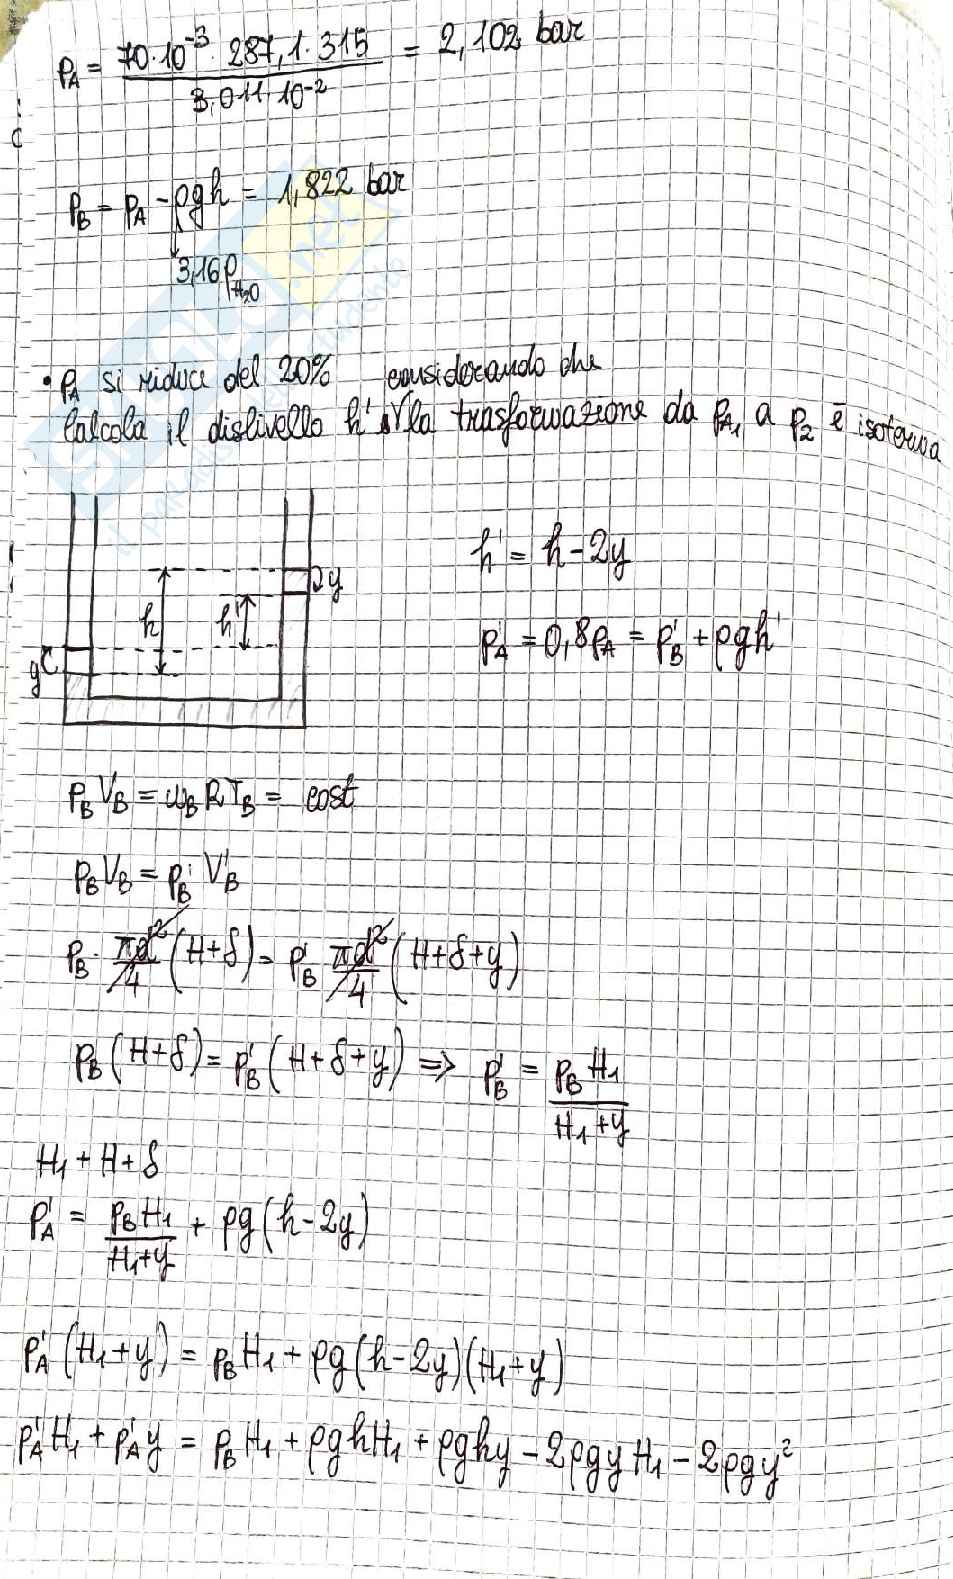 pA = 70·10⁻³ · 287,1·315 / 3,011·10⁻² = 2,102 bar
pB = pA - ρgh = 1,822 bar
3,16ρH₂O
• pA si riduce del 20% considerando che
Calcola il dislivello h' la trasformazione da pA₁ a p₂ è isoterma
h' = h - 2y
y
h
h'
p'A = 0,8pA = p'B + ρgh'
y
pB VB = mB R TB = cost
pB VB = p'B V'B
pB · πd²/4 (H+δ) = p'B πd²/4 (H+δ+y)
pB (H+δ) = p'B (H+δ+y) => p'B = pB H₁ / H₁+y
H₁ + H + δ
p'A = pB H₁ / H₁+y + ρg(h-2y)
p'A (H₁+y) = pB H₁ + ρg(h-2y)(H₁+y)
p'A H₁ + p'A y = pB H₁ + ρghH₁ + ρghy - 2ρgyH₁ - 2ρgy²